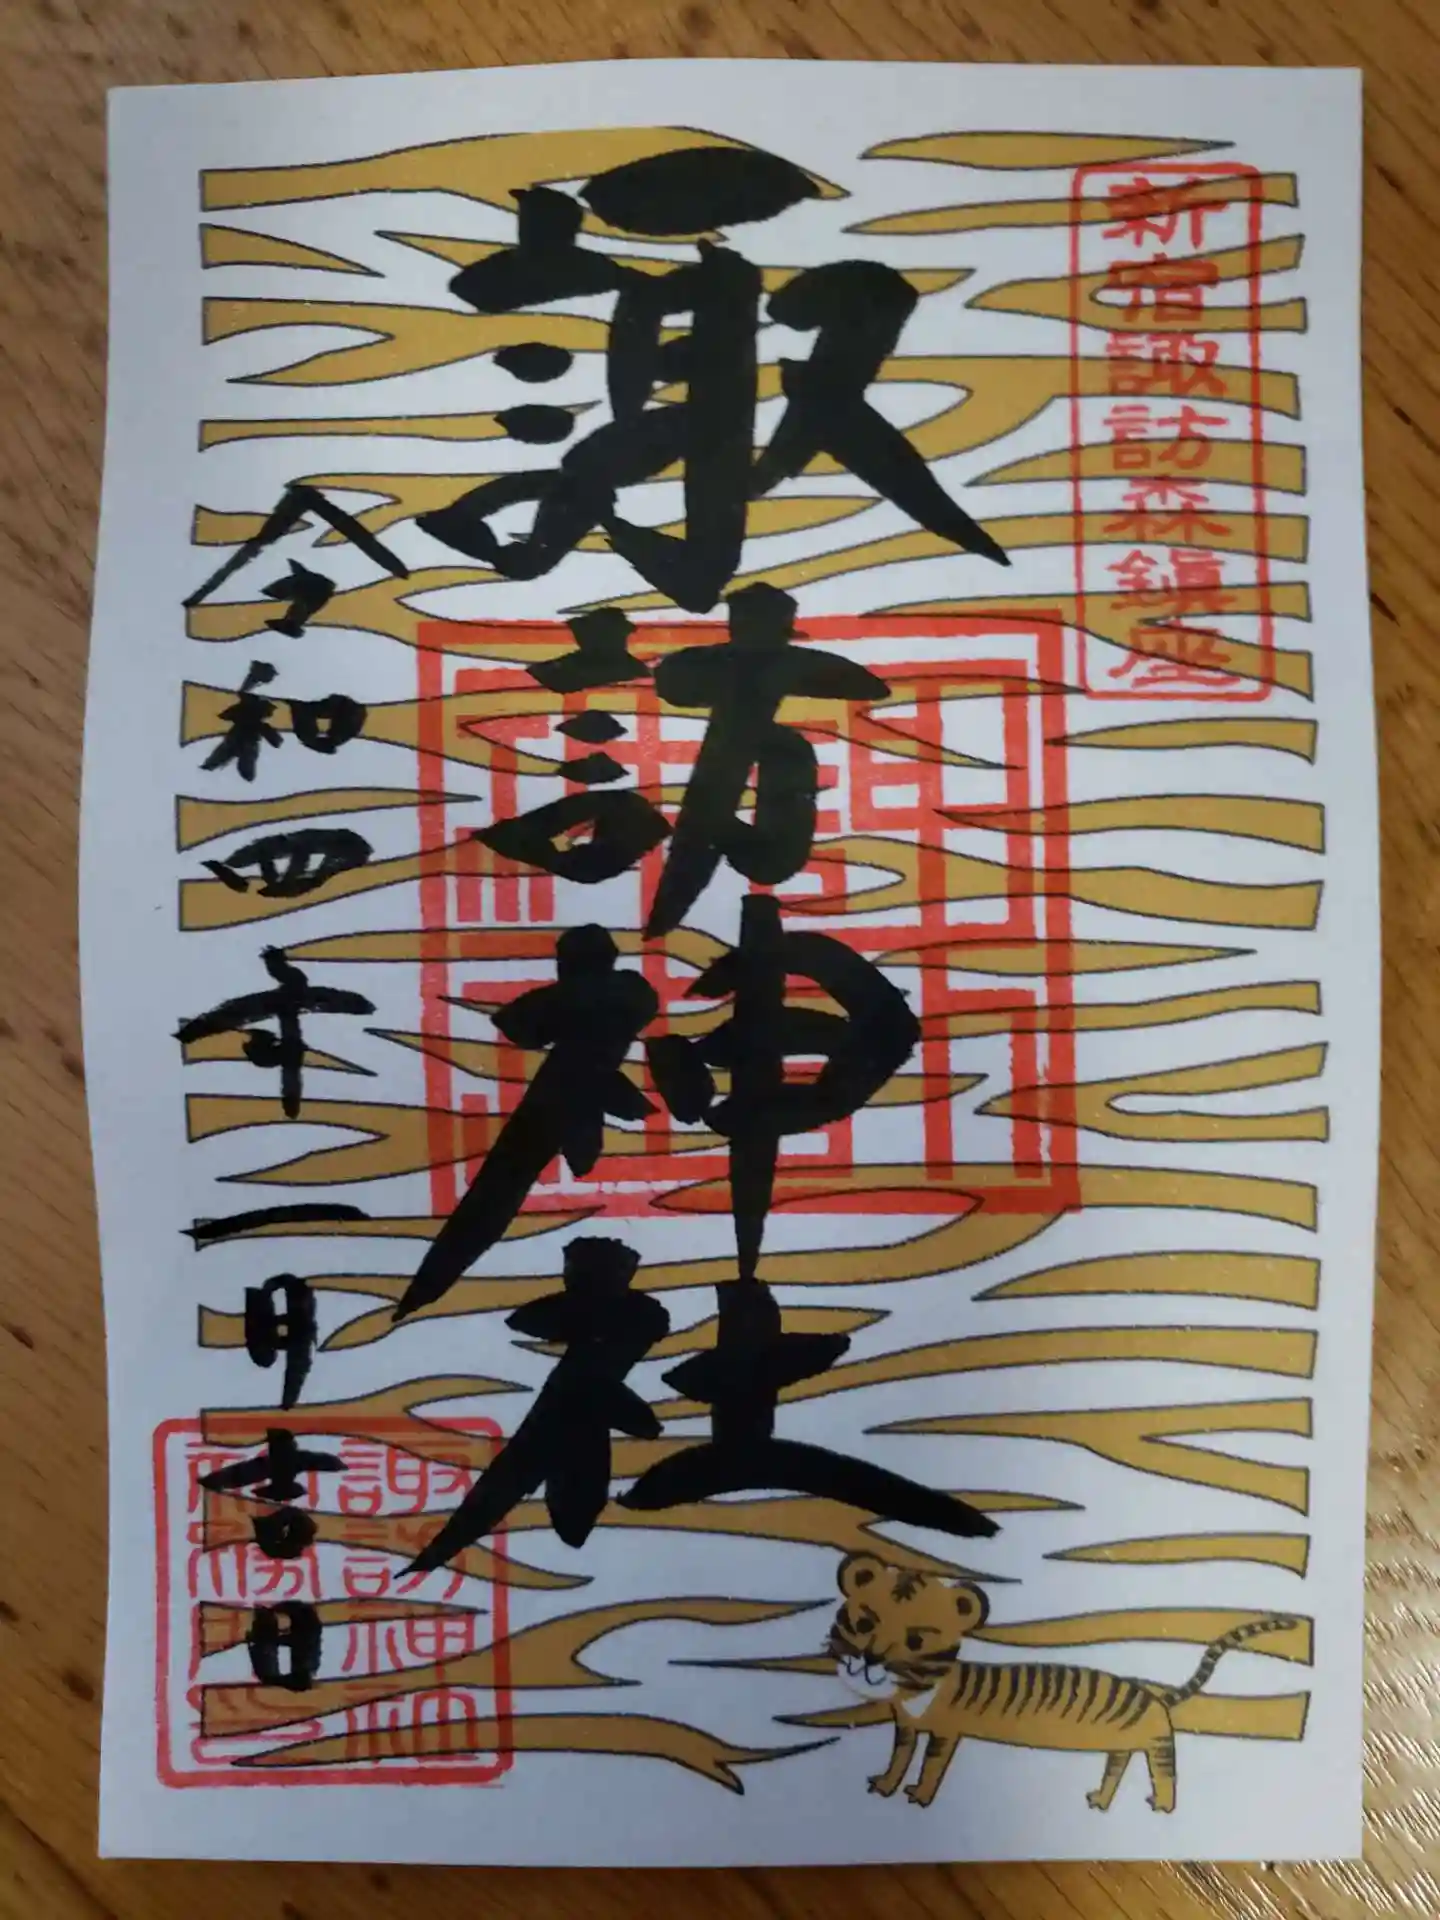 新宿諏訪森鎮座
諏訪神社
令和四年一月吉日
諏訪神社
社務所印